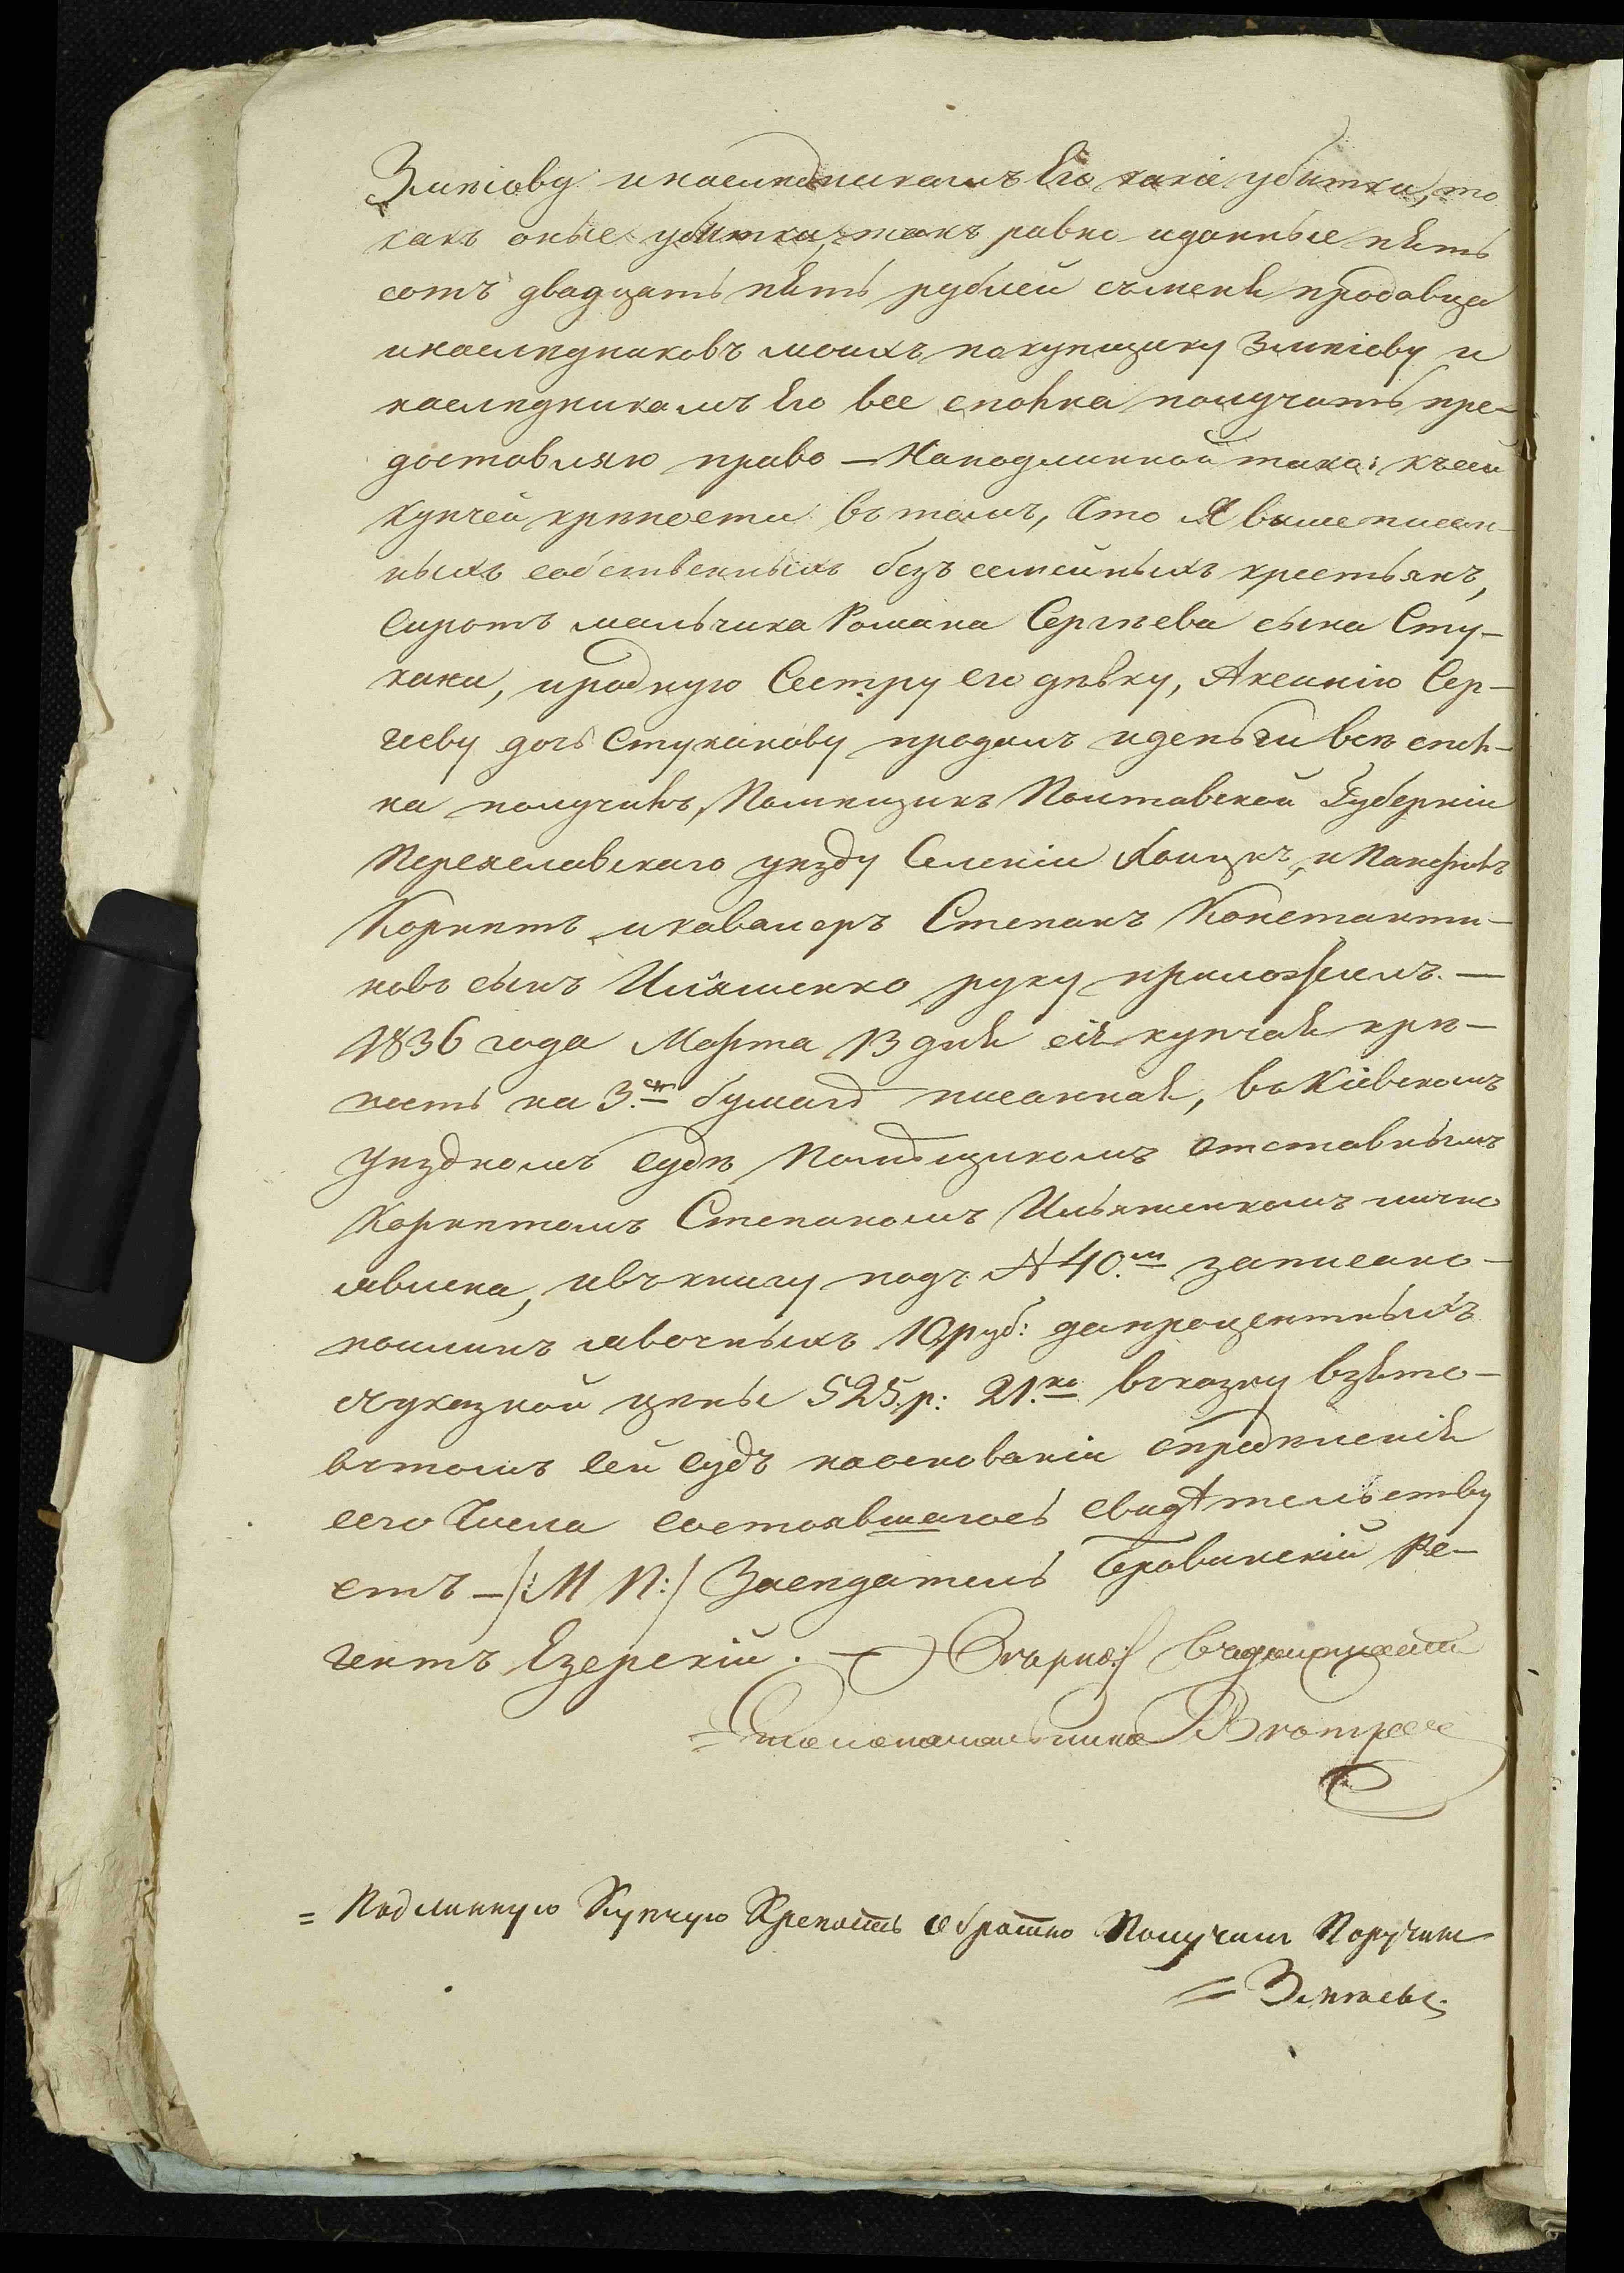 Змпіову инаслѣдникамъ Его какіе убытки, то
какъ оные убытки, такъ равно иданные пять
сотъ двадцать пять рублей съменя продавца
инаслѣдниковъ моихъ покупщику Змпіову и
наслѣдникамъ Его все сполна получать пре-
доставляю право — Наподлинной тако: ксей
купчей крѣпости вътомъ, Что Я вышеписан-
ныхъ собственныхъ безъ семейныхъ крестьянъ,
Сиротъ мальчика Романа Сергѣева сына Сту-
кана, иродную Сестру его дѣвку, Аксинію Сер-
гиеву дочь Стуканову продалъ иденьги всѣ спол-
на получилъ, Помѣщикъ Полтавской Губерніи
Переяславскаго уѣзду Селеніи Хоцкъ, и
Корнетъ икавалеръ Степанъ Константи-
новъ сынъ Ильяшенко руку приложилъ. —
1836 года Марта 13 дня сія купчая крѣ-
пость на 3. бумагѣ писанная, въ Кіевскомъ
Уѣздномъ Судѣ Помѣщикомъ отставнымъ
Корнетомъ Степаномъ Ильяшенкомъ лично
явлена, ивъкнигу подъ № 40.м записано —
пошлинъ явочныхъ 10 руб: допроцентныхъ
суказной цѣны 525. р: 21. ко вказну взято —
вътомъ сей судъ наоснованіи опредѣленія
сего Числа состоявшагось свидѣтельству
етъ — /: М П :/ Засѣдатель Бровинскій Ре-
гентъ Езерскій. —
Столоначальника
= Подлинную Купчую Крепость обратно Получилъ Поручикъ
=